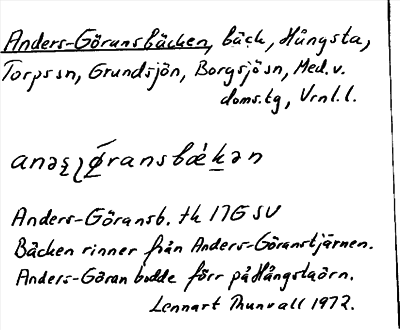 Anders-Göransbäcken, bäck, Hångsta,
Torps sn, Grundsjön, Borgsjö sn, Med. v.
doms.tg, Vrnl. l.
Anders-Göransb. tk 17G SV
Bäcken rinner från Anders-Göranstjärnen.
Anders-Göran bodde förr på Hångstaörn.
Lennart Thunvall 1972.